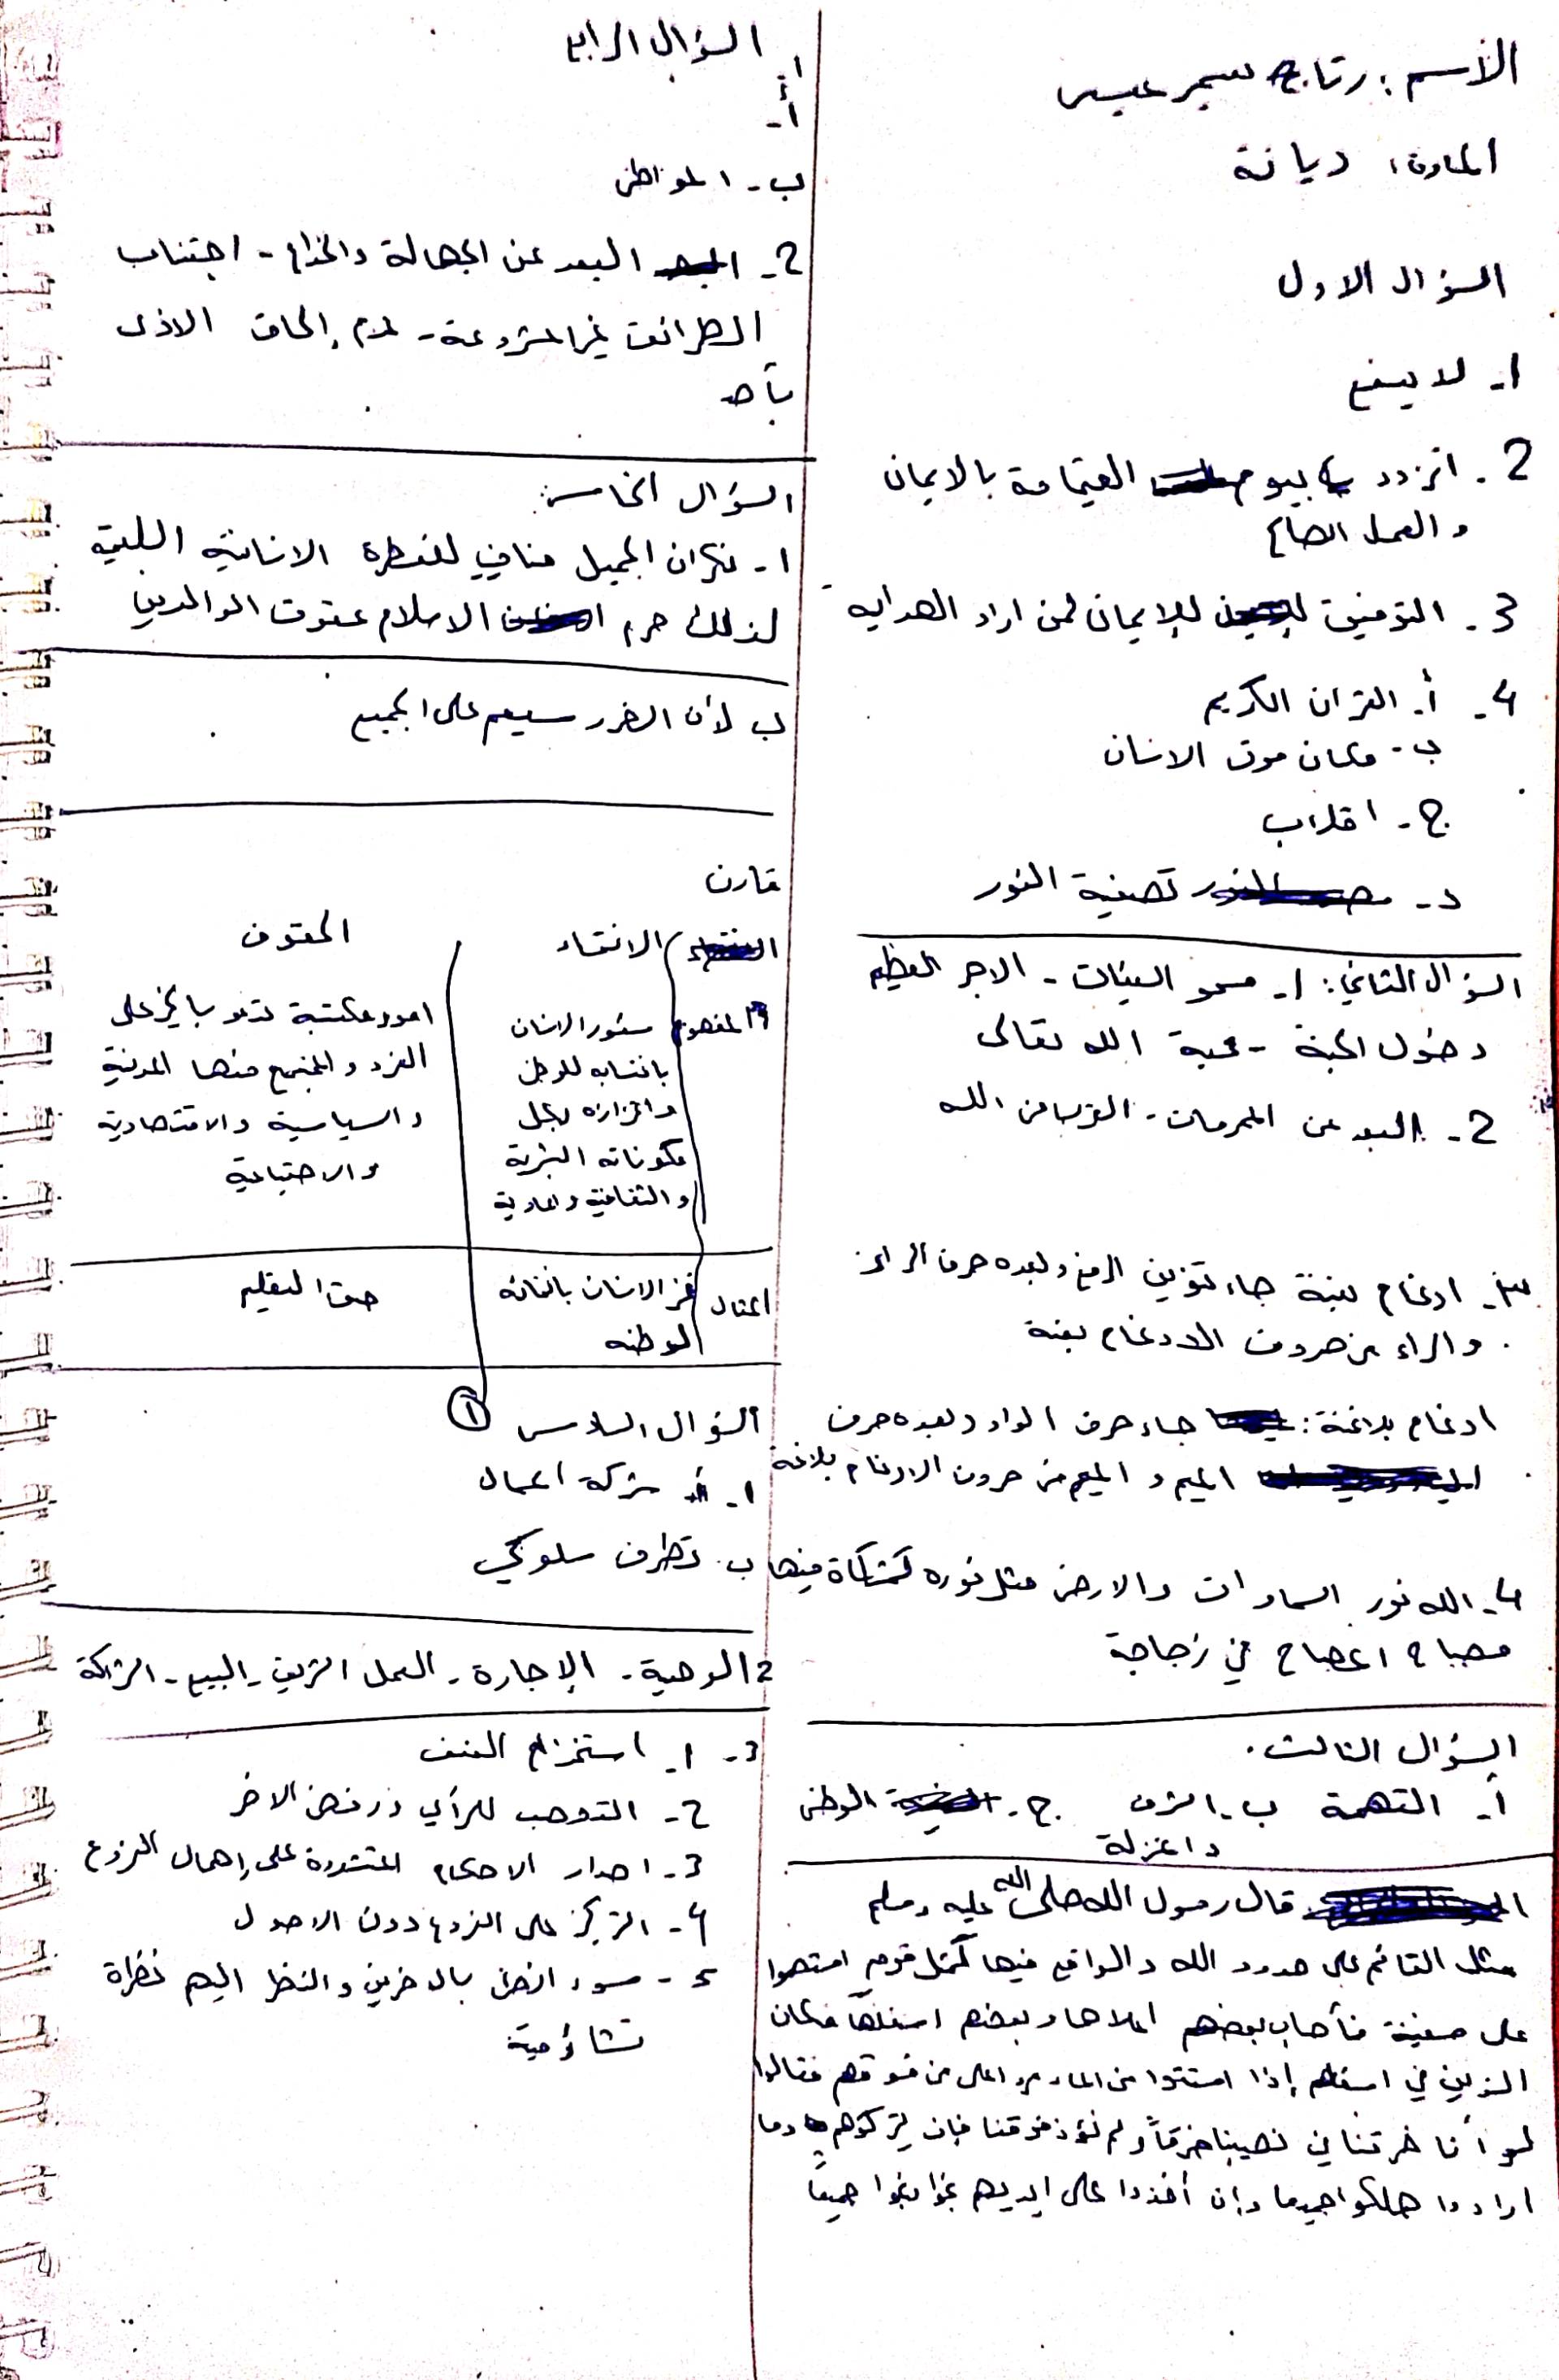 الأسم : رتاج سمير عيسى
المادة : ديانة
السؤال الاول
1- لا يسع
2- اتزود بيوم القيامة بالايمان
والعمل الصالح
3- التوفيق للإيمان لمن اراد الهداية
4- أ. القران الكريم
ب- مكان موت الانسان
ج- اقتراب
د- تصفية النور
السؤال الثاني: 1- محو السيئات - الاجر العظيم
دخول الجنة - محبة الله تعالى
2- البعد عن المحرمات - القرب من الله
3- ادغام بغنة جاء تنوين الرفع وبعده حرف الراء
والراء من حروف الادغام بغنة
ادغام بلاغنة: جاء حرف الواو وبعده حرف
الميم و الميم من حروف الادغام بلاغنة
4- الله نور السماوات والارض مثل نوره كمشكاة فيها
مصباح المصباح في زجاجة
السؤال الثالث.
أ- التهمة ب- الشرف ج- الوطن
د المنزلة
قال رسول الله صلى الله عليه وسلم
مثل القائم على حدود الله والواقع فيها كمثل قوم استهموا
على سفينة فأصاب بعضهم اعلاها وبعضهم اسفلها فكان
الذين في اسفلها إذا استقوا من الماء مروا على من فوقهم فقالوا
لو أنا خرقنا في نصيبنا خرقاً ولم نؤذ فوقنا فإن يتركوهم وما
ارادوا هلكوا جميعا وإن أخذوا على ايديهم نجوا ونجوا جميعاً
السؤال الرابع
1-
أ-
ب- المواطن
2- البعد عن الجهالة والخداع - اجتناب
الطرائق غير المشروعة - عدم إلحاق الاذى
بأحد
السؤال الخامس:
1- نكران الجميل منافي للفطرة الانسانية السليمة
لذلك حرم الاسلام عقوق الوالدين
ب لأن الضرر سيعم على الجميع
قارن
الانتماء الحقوق
المفهوم شعور الانسان امور مكتسبة تعود بالخير على
بانتسابه للوطن الفرد والمجتمع منها المدنية
واعتزازه بكل والسياسية والاقتصادية
مكوناته البشرية والاجتماعية
والثقافية والمادية
المثال فخر الانسان بانتمائه حق التعليم
لوطنه
السؤال السادس 1
1- أ شركة اعمال
ب. تطرف سلوكي
2 الوصية - الإجارة - العمل الشريف - البيع - الشركة
3- 1- استخدام العنف
2- التعصب للرأي ورفض الاخر
3- اصدار الاحكام المتشددة على إهمال الفروع
4- التركيز على الفروع دون الاصول
5- سوء الظن بالاخرين والنظر اليهم نظرة
تشاؤمية